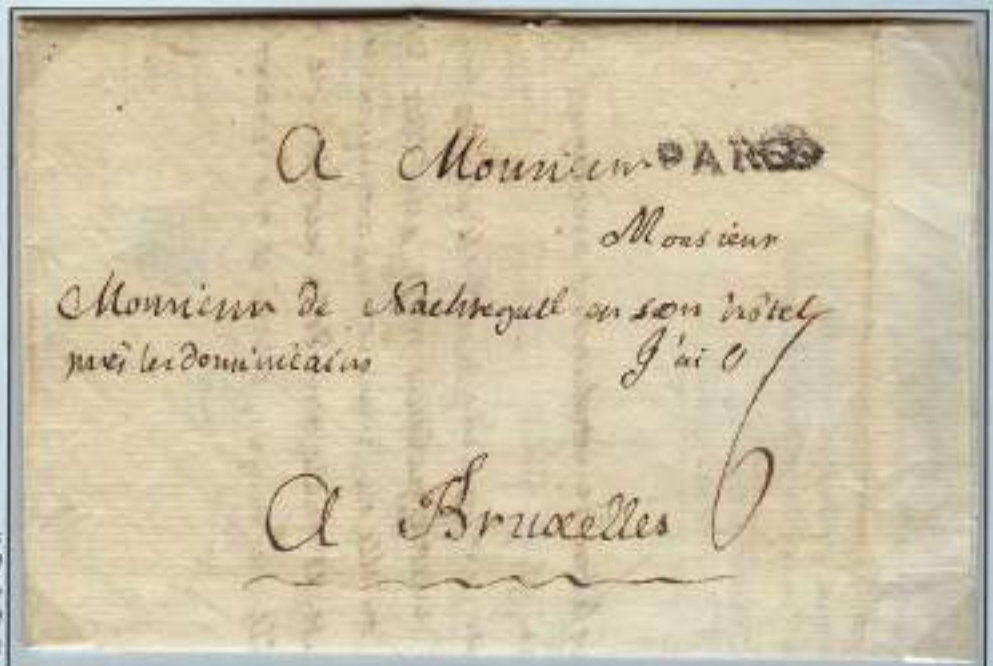 A Monsieur PARIS
Monsieur
Monsieur de en son hôtel
près les dominicains J'ai
A Bruxelles 6